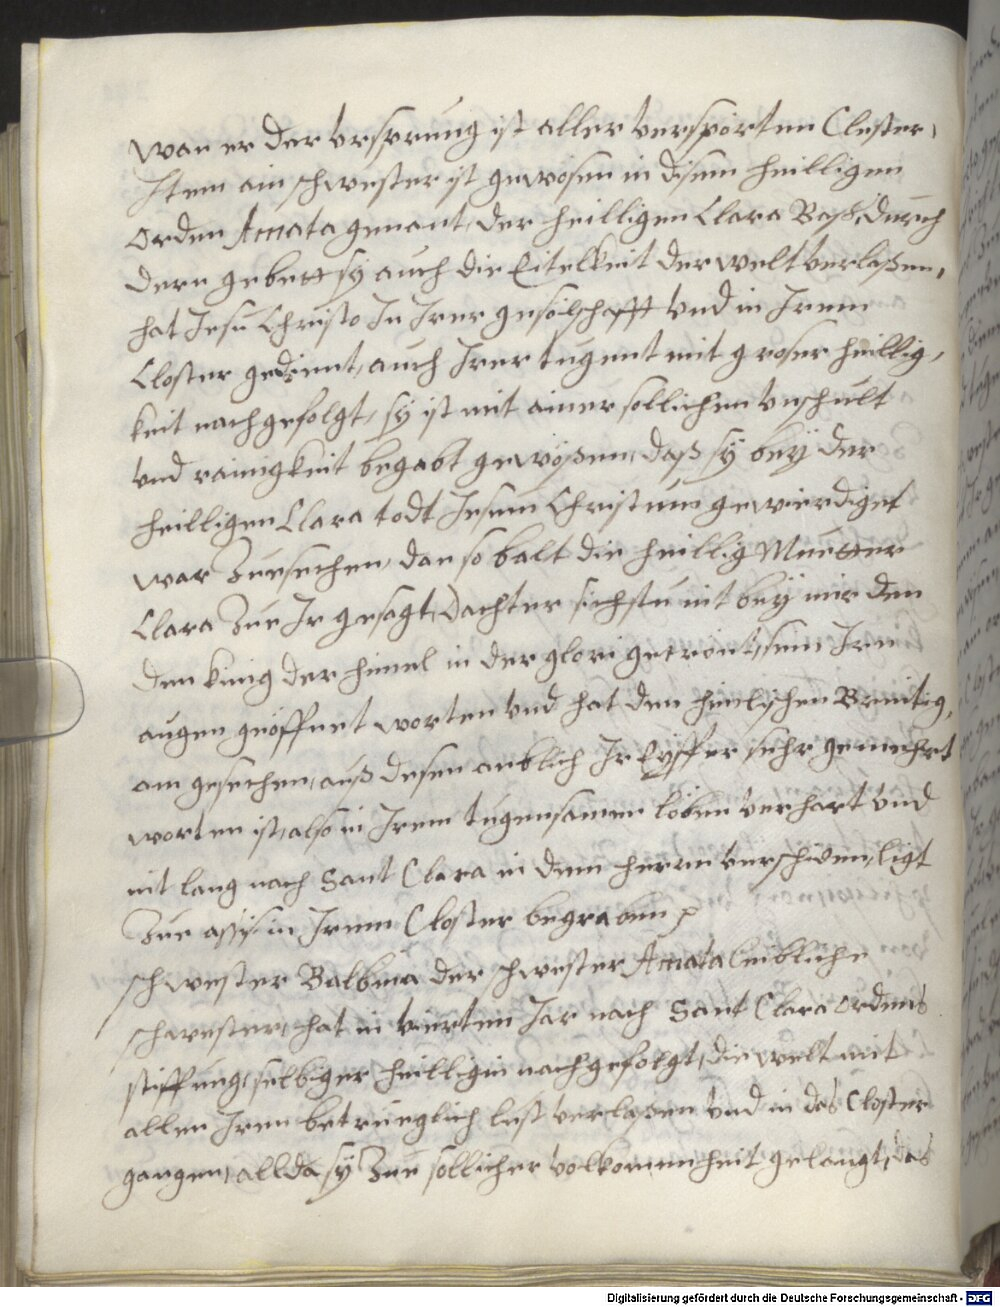 wan er der Ursprung ist aller versporten Clester,
Item ain schwester ist gewösen in disem heilligen
orden Amata genant, der heilligen Clara Baß, durch
dere gebett sy auch die Eitelkeit der welt verlaßen,
hat Jesu Christo In Irer gesölschafft und in Irem
Closter gedient, auch Irer tugent mit groser heillig,
keit nachgefolgt, sy ist mit ainer sollichen unschult
und rainigkeit begabt gewößen, daß sy beÿ der
heilligen Clara todt Jesum Christum gewierdiget
war Zuesechen, dan so balt die heillig Muetter
Clara Zue Ir gesagt, dachter sichstu nit beÿ mir den
den king der himel in der glori gekrönt, sein Ire
augen geöffnet worten und hat den himlischen Breitig,
am gesechen, auß desen anblich Ir Eÿffer sehr gemehrt
worten ist, also in Irem tugensamen löben verhart und
nit lang nach Sant Clara in dem herrn verschiden, ligt
Zue assis in Irem Closter begraben
schwester Balbina der schwester Amata leibliche
schwester, hat in vierten Jar nach Sant Clara ordens
stifftung, selbiger heilligin nachgefolgt, die welt mit
allen Iren betrieglich lust verlaßen und in das Closter
gangen, allda sy Zue sollicher volkomenheit gelangt, das
Digitalisierung gefördert durch die Deutsche Forschungsgemeinschaft - DFG